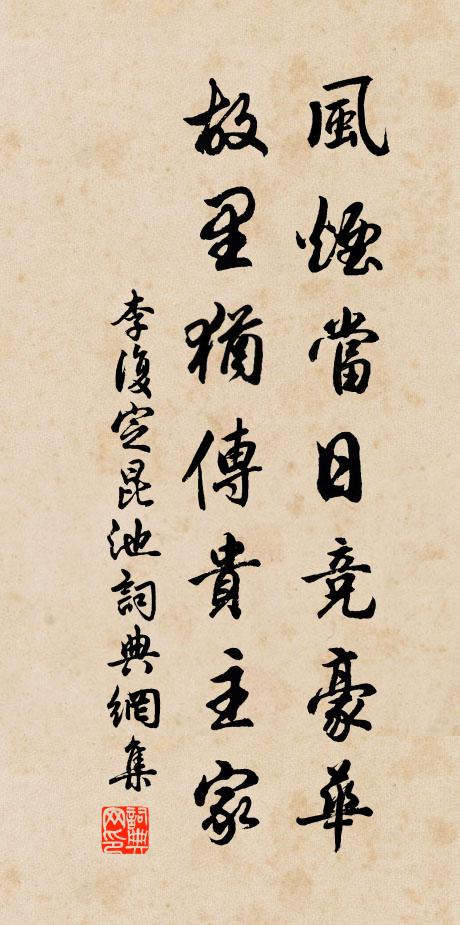 風煙當日競豪華
故里猶傳貴主家
李復定昆池詞典網集
詞典网印